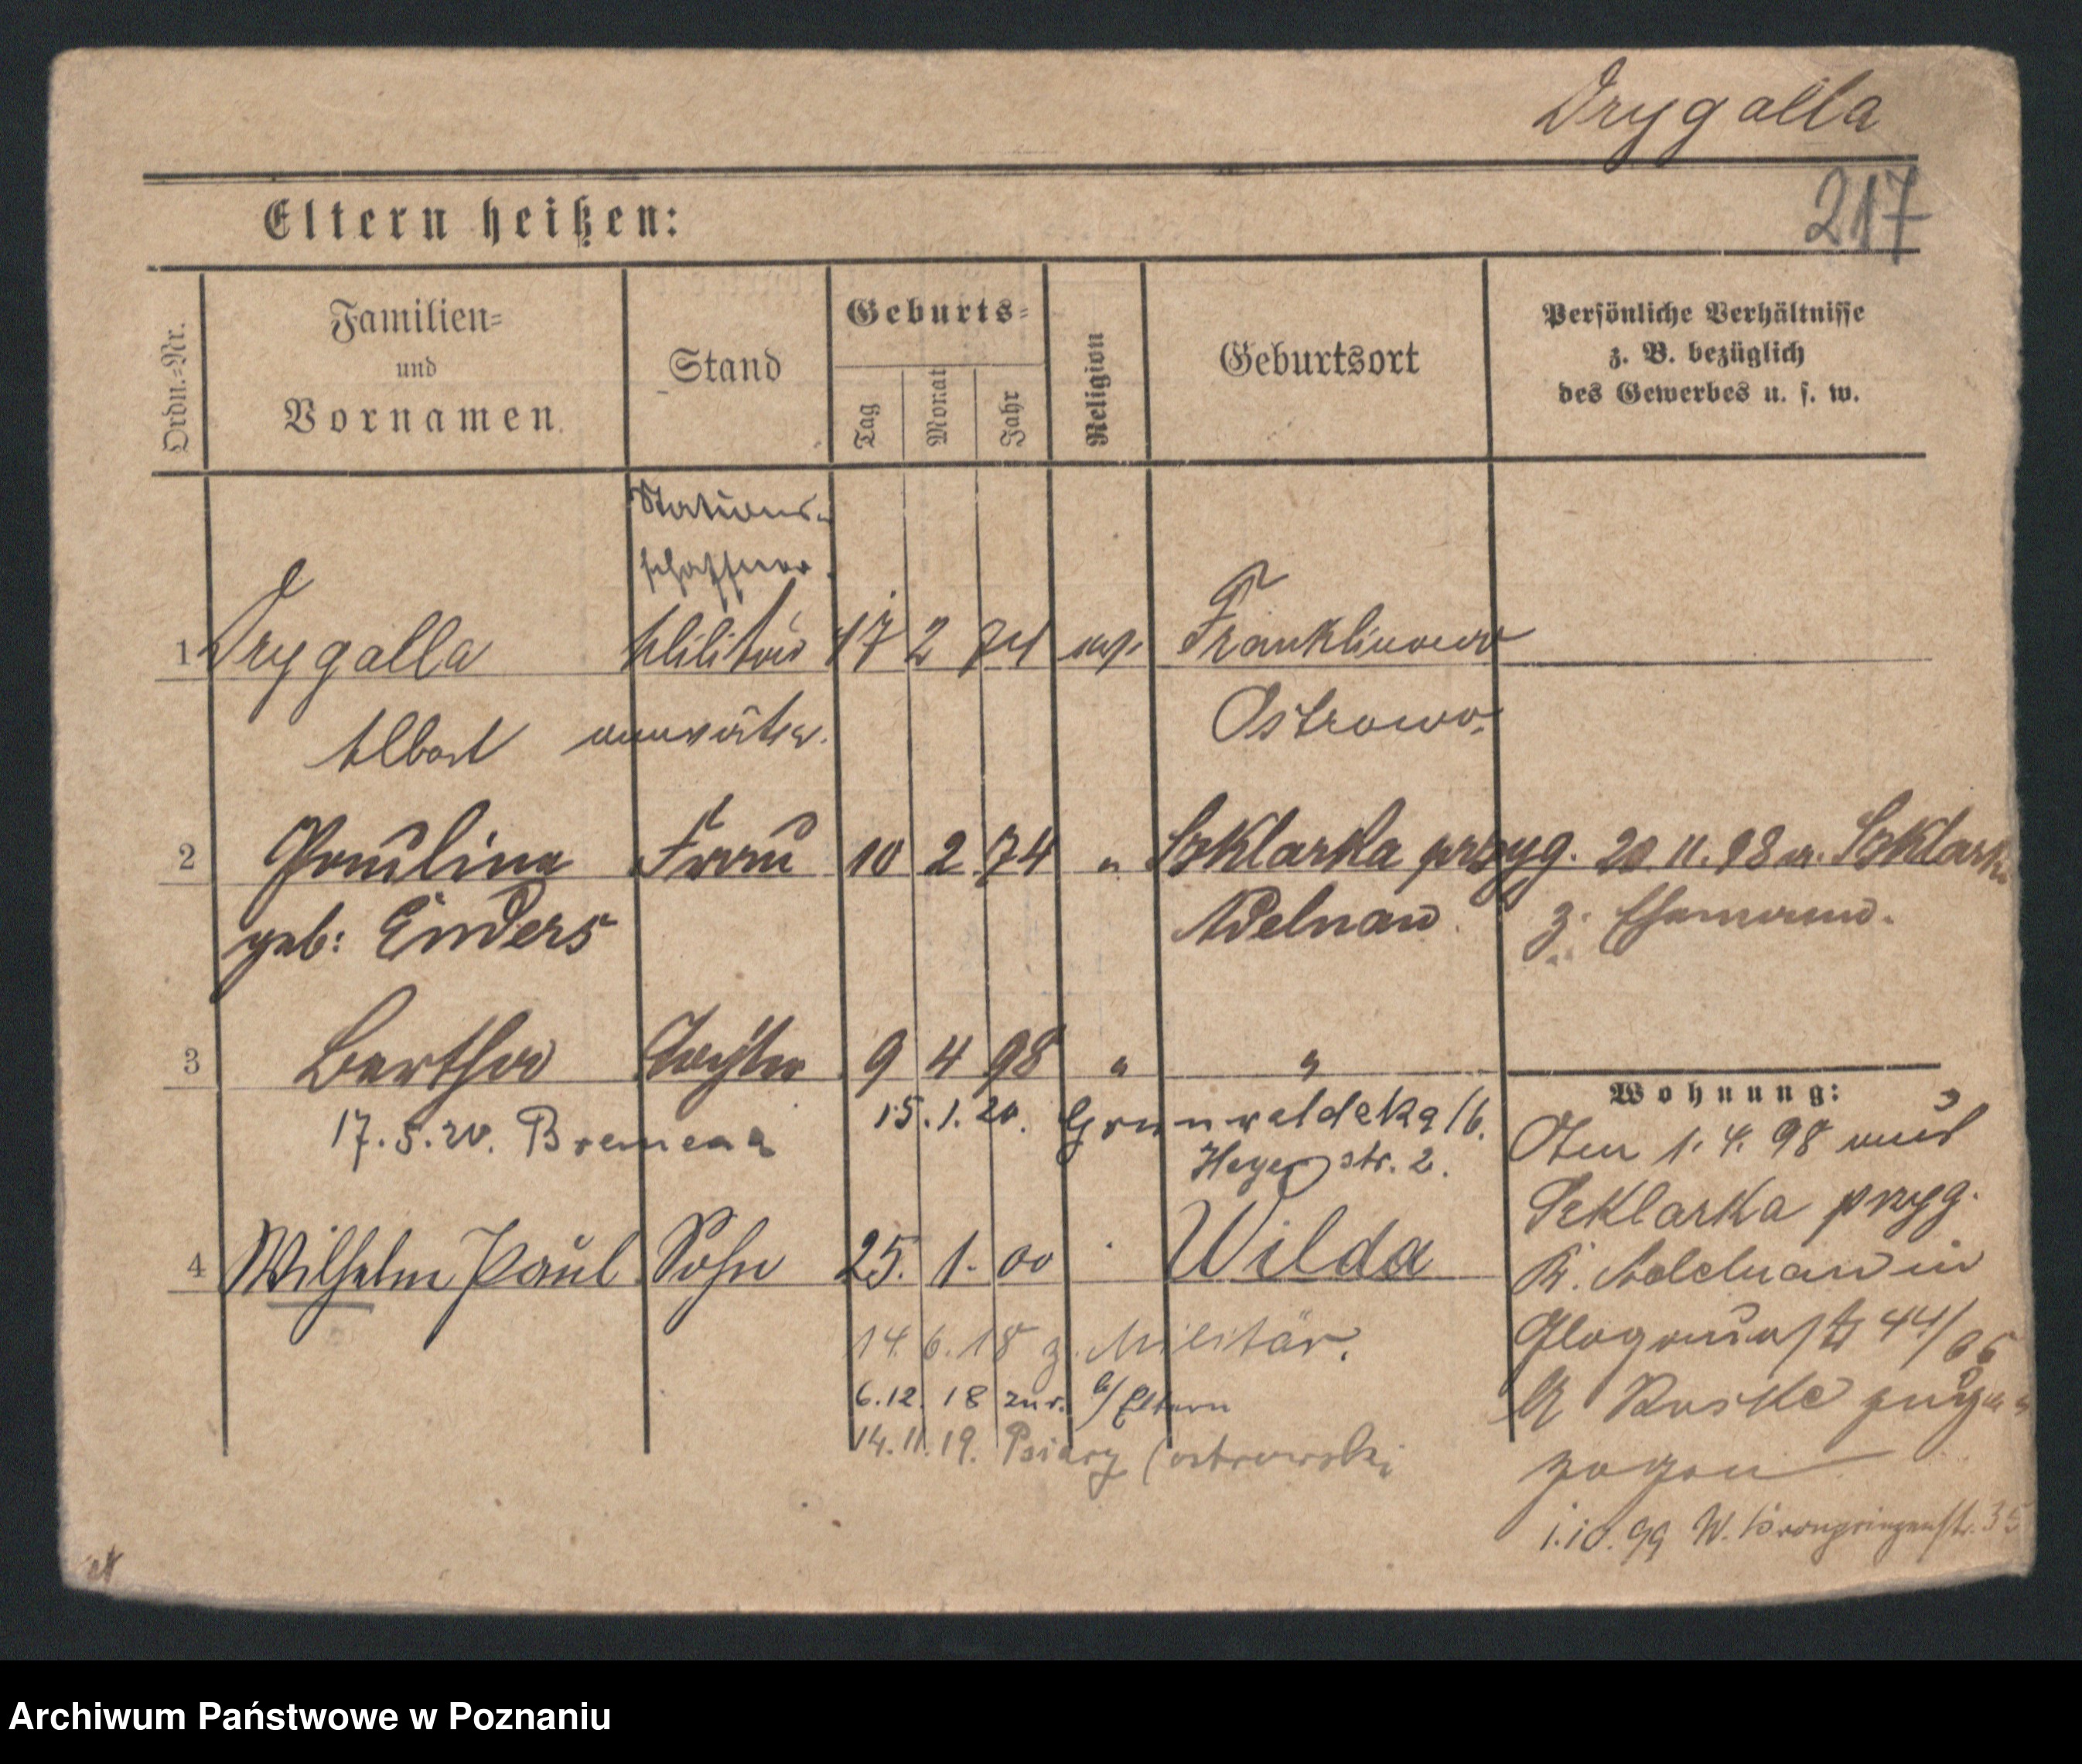 Drygalla
217
Eltern heißen:
Ordn.-Nr.
Familien-
und
Vornamen.
Stand
Geburts-
Tag
Monat
Jahr
Religion
Geburtsort
Persönliche Verhältnisse
z. B. bezüglich
des Gewerbes u. s. w.
Stations-
schaffner.
1 Drygalla Militär 17 2 74 ev. Franklinowo
Albert anwärter. Ostrowo.
2 Paulina Frau 10 2 74 " Szklarka przyg. 20.11.98 a. Szklarka
geb: Enders Adelnau z. Ehemann.
3 Bertha Tochter 9 4 98 " "
15.1.20. Grunwaldzka 16.
17.5.20. Bremen
str. 2.
4 Wilhelm Paul Sohn 25. 1. 00 Wilda
14.6.18 z. Militär.
6.12.18 zur. b/ Eltern
14.11.19. Psiary (ostrowski
Wohnung:
Am 1.4.98 aus
Szklarka przyg.
Kr. Adelnau in
Glogauerstr 44/
zogen
1.10.99 W. Kronprinzenstr. 35
Archiwum Państwowe w Poznaniu